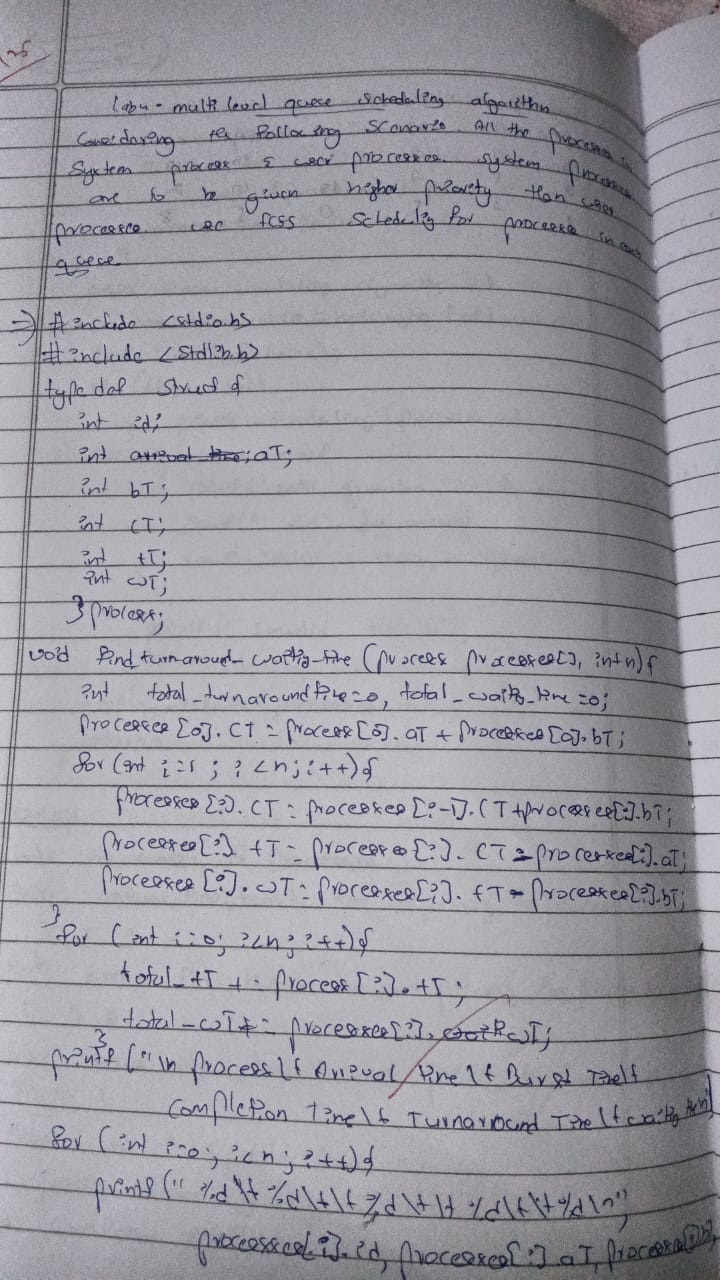 Lab4 - multi level queue scheduling algorithm
Considering the following scenario All the processes in
System process & user processes. system processes
are to be given higher priority than user
processes. use FCSS Scheduling for processes in each
queue
=> #include <stdio.h>
#include <stdlib.h>
typedef struct {
int id;
int aT;
int bT;
int CT;
int tT;
int wT;
} process;
void find turnaround_waiting_time (process processes[], int n) {
int total_turnaround time = 0, total_waiting_time = 0;
processes [0]. CT = process [0]. aT + processes [0]. bT;
for (int i=1; i<n; i++) {
processes [i]. CT = processes [i-1]. CT + processes[i].bT;
processes [i]. tT = processes [i]. CT - processes[i].aT;
processes [i]. wT = processes[i]. tT - processes[i].bT;
}
for (int i=0; i<n; i++) {
total_tT += process [i]. tT;
total_wT += processes[i]. wT;
}
printf ("\n process \t Arrival time \t Burst Time \t
Completion Time \t Turnaround Time \t waiting time \n")
for (int i=0; i<n; i++) {
printf (" %d \t %d \t \t %d \t \t %d \t \t %d \n",
processes[i]. id, processes[i]. aT, processes[i].bT,